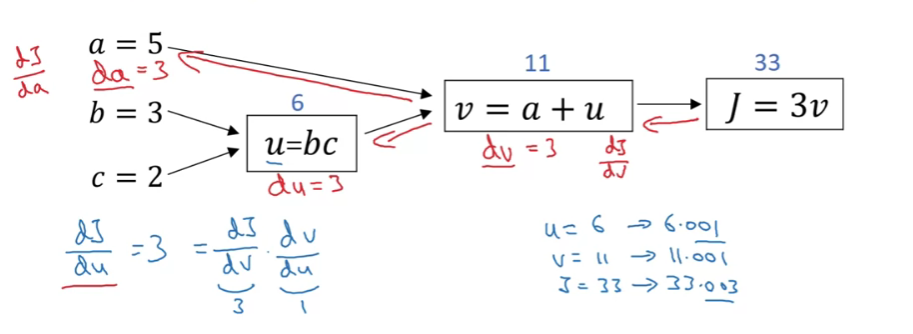 a = 5
dJ/da
da = 3
b = 3
c = 2
6
u=bc
du = 3
11
v = a + u
dv = 3
dJ/dv
33
J = 3v
dJ/du = 3 = dJ/dv · dv/du
3 1
u = 6 → 6.001
v = 11 → 11.001
J = 33 → 33.003